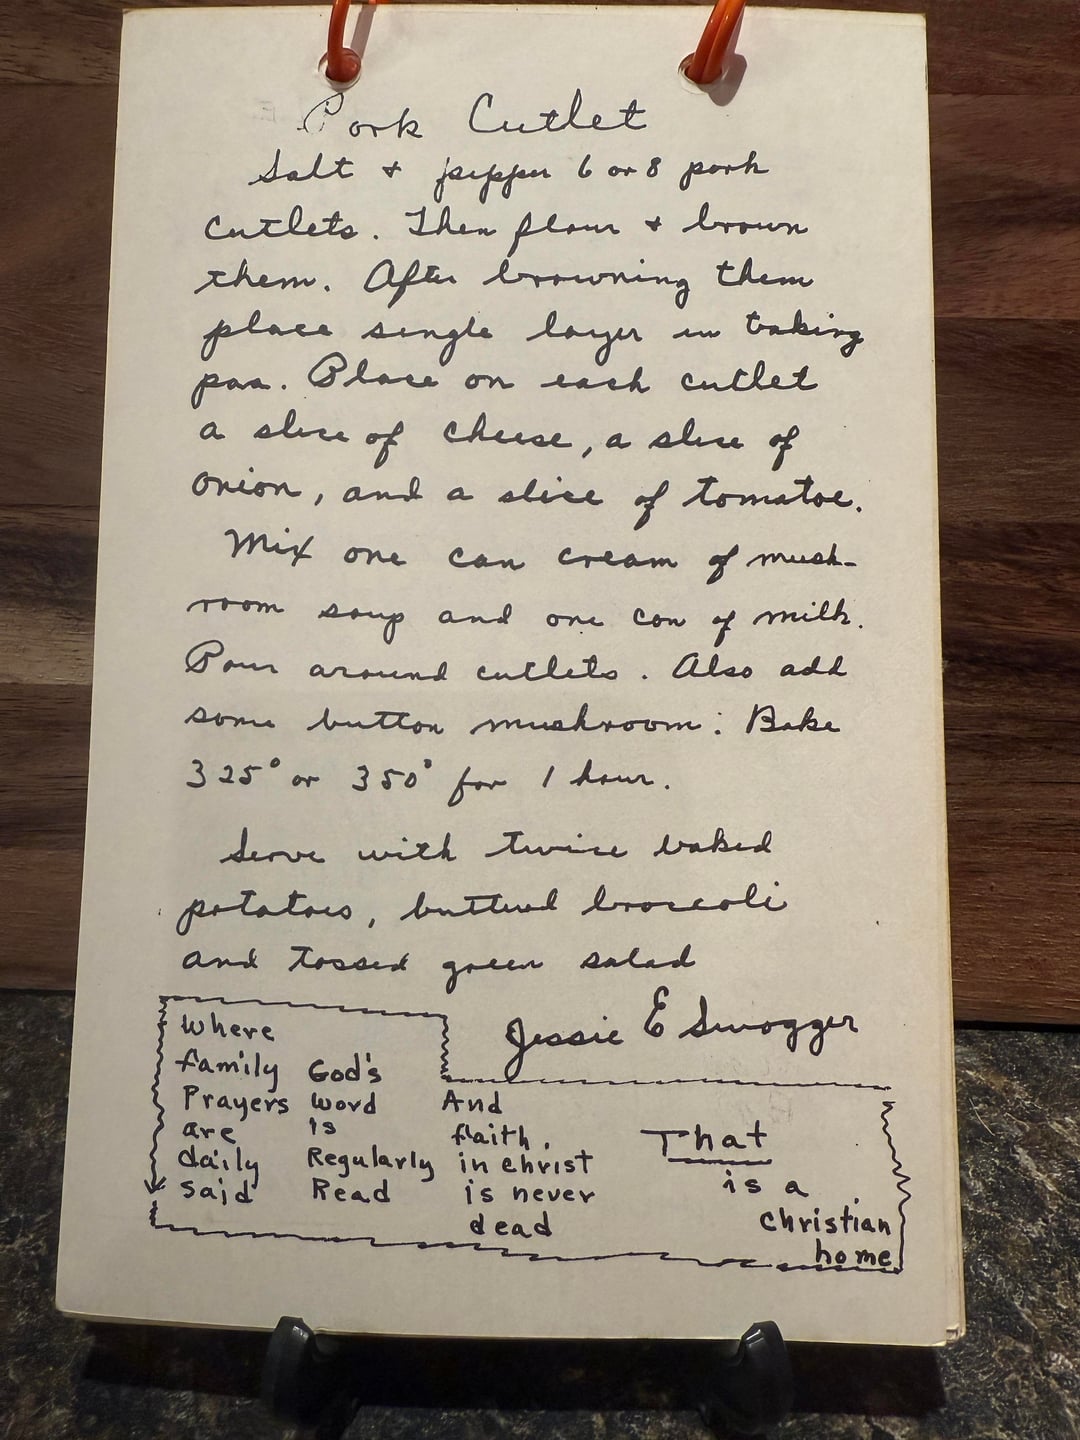 Pork Cutlet
Salt + pepper 6 or 8 pork
cutlets. Then flour + brown
them. After browning them
place single layer in baking
pan. Place on each cutlet
a slice of cheese, a slice of
onion, and a slice of tomatoe.
Mix one can cream of mush-
room soup and one can of milk.
Pour around cutlets. Also add
some button mushroom. Bake
325° or 350° for 1 hour.
Serve with twice baked
potatoes, buttered broccoli
and tossed green salad
Jessie E Swogger
Where
family
Prayers
are
daily
said
God's
word
is
Regularly
Read
And
faith
in christ
is never
dead
That
is a
christian
home